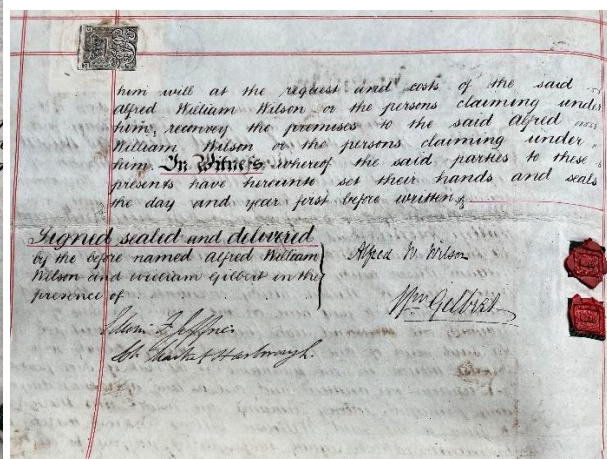 him will at the request and costs of the said
Alfred William Wilson or the persons claiming under
him, reconvey the premises to the said Alfred
William Wilson or the persons claiming under
him In Witness whereof the said parties to these
presents have hereunto set their hands and seals
the day and year first before written
Signed sealed and delivered
by the before named Alfred William
Wilson and William Gilbert in the
presence of
Alfred W. Wilson
Wm Gilbert
Market Harborough.